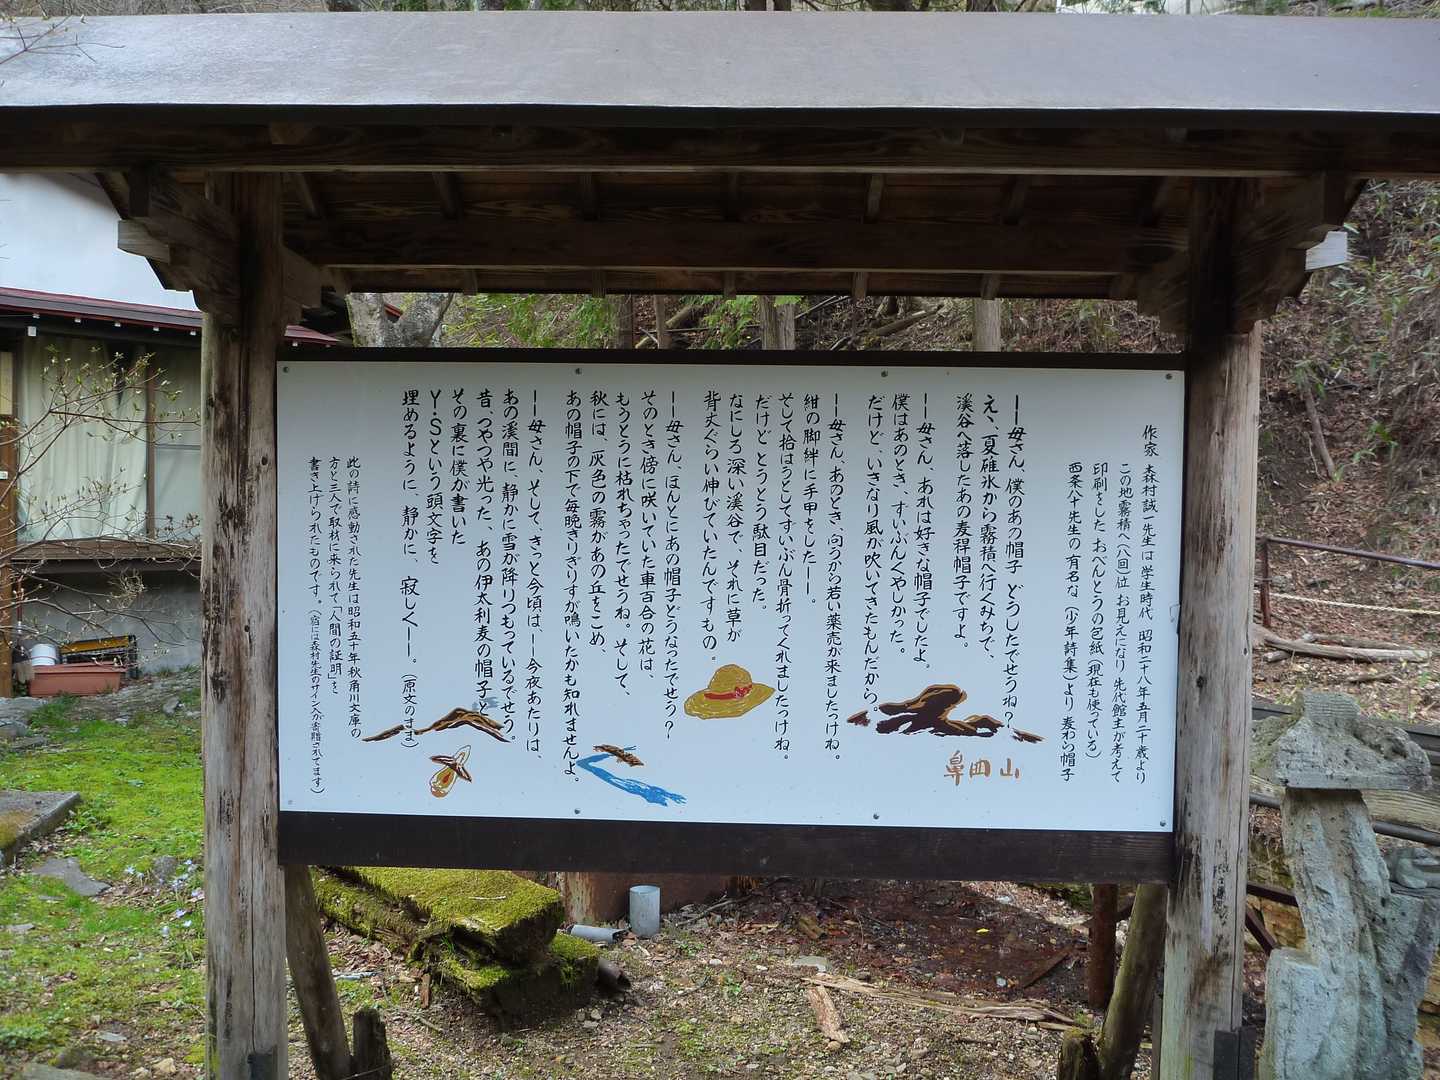 作家 森村誠一先生は学生時代 昭和二十八年五月二十歳より
この地霧積へ(八回)位 お見えになり 先代館主が考えて
印刷をした おべんとうの包紙(現在も使っている)
西条八十先生の有名な(少年詩集)より 麦わら帽子
――母さん、僕のあの帽子 どうしたでせうね?
えゝ、夏碓氷から霧積へ行くみちで、
渓谷へ落したあの麦稈帽子ですよ。
――母さん、あれは好きな帽子でしたよ。
僕はあのとき、ずいぶんくやしかった。
だけど、いきなり風が吹いてきたもんだから。
――母さん、あのとき、向うから若い薬売が来ましたっけね。
紺の脚絆に手甲をした――。
そして拾はうとしてずいぶん骨折ってくれましたっけね。
だけどとうとう駄目だった。
なにしろ深い渓谷で、それに草が
背丈ぐらい伸びていたんですもの。
――母さん、ほんとにあの帽子どうなったでせう?
そのとき傍に咲いていた車百合の花は、
もうとうに枯れちゃったでせうね。そして、
秋には、灰色の霧があの丘をこめ、
あの帽子の下で毎晩きりぎりすが鳴いたかも知れませんよ。
――母さん、そして、きっと今頃は――今夜あたりは、
あの渓間に、静かに雪が降りつもっているでせう。
昔、つやつや光った、あの伊太利麦の帽子と
その裏に僕が書いた
Y・Sという頭文字を
埋めるように、静かに、寂しく――。(原文のまま)
此の詩に感動された先生は昭和五十年秋角川文庫の
方と三人で取材に来られて「人間の証明」を、
書き上げられたものです。(宿には森村先生のサイン入が寄贈されてます)
鼻曲山